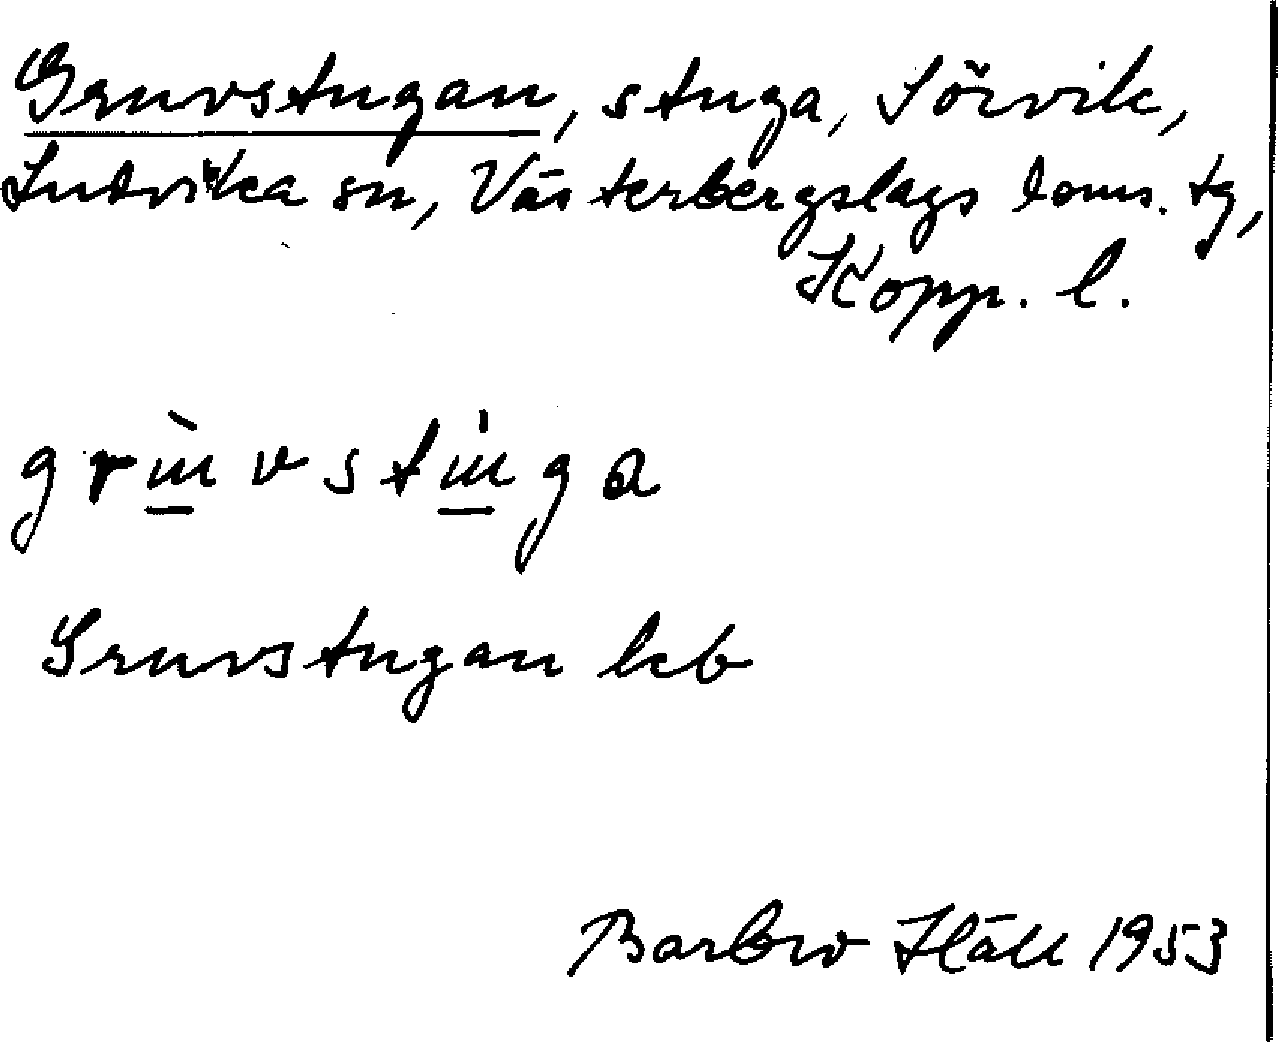 Gruvstugan, stuga, Sörvik,
Ludvika sn, Västerbergslags doms. tg,
Kopp. l.
grù̱vstu̱̍ga
Gruvstugan kb
Barbro Häll 1953